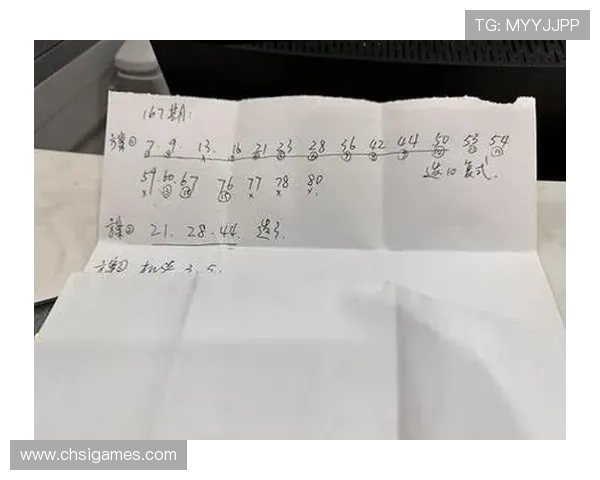 TG: MYYJJPP
167期:
方案① 7. 9. 13. 16 21 23 28 36 42 44 50 53 54
59. 60. 67 76 77 78 80 选10复式
方案② 21. 28. 44. 选3.
方案③ 机选 3. 5.
www.chsigames.com